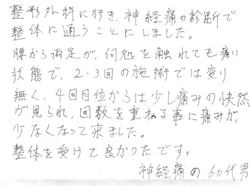 整形外科に行き、神経痛の診断で
整体に通うことにしました。
腰から両足が、何処を触れても痛い
状態で、2・3回の施術では変り
無く、4回目位からは少し痛みの快然
が見られ、回数を重ねる事に痛みが、
少なくなって来ました。
整体を受けて良かったです。
神経痛の60代男